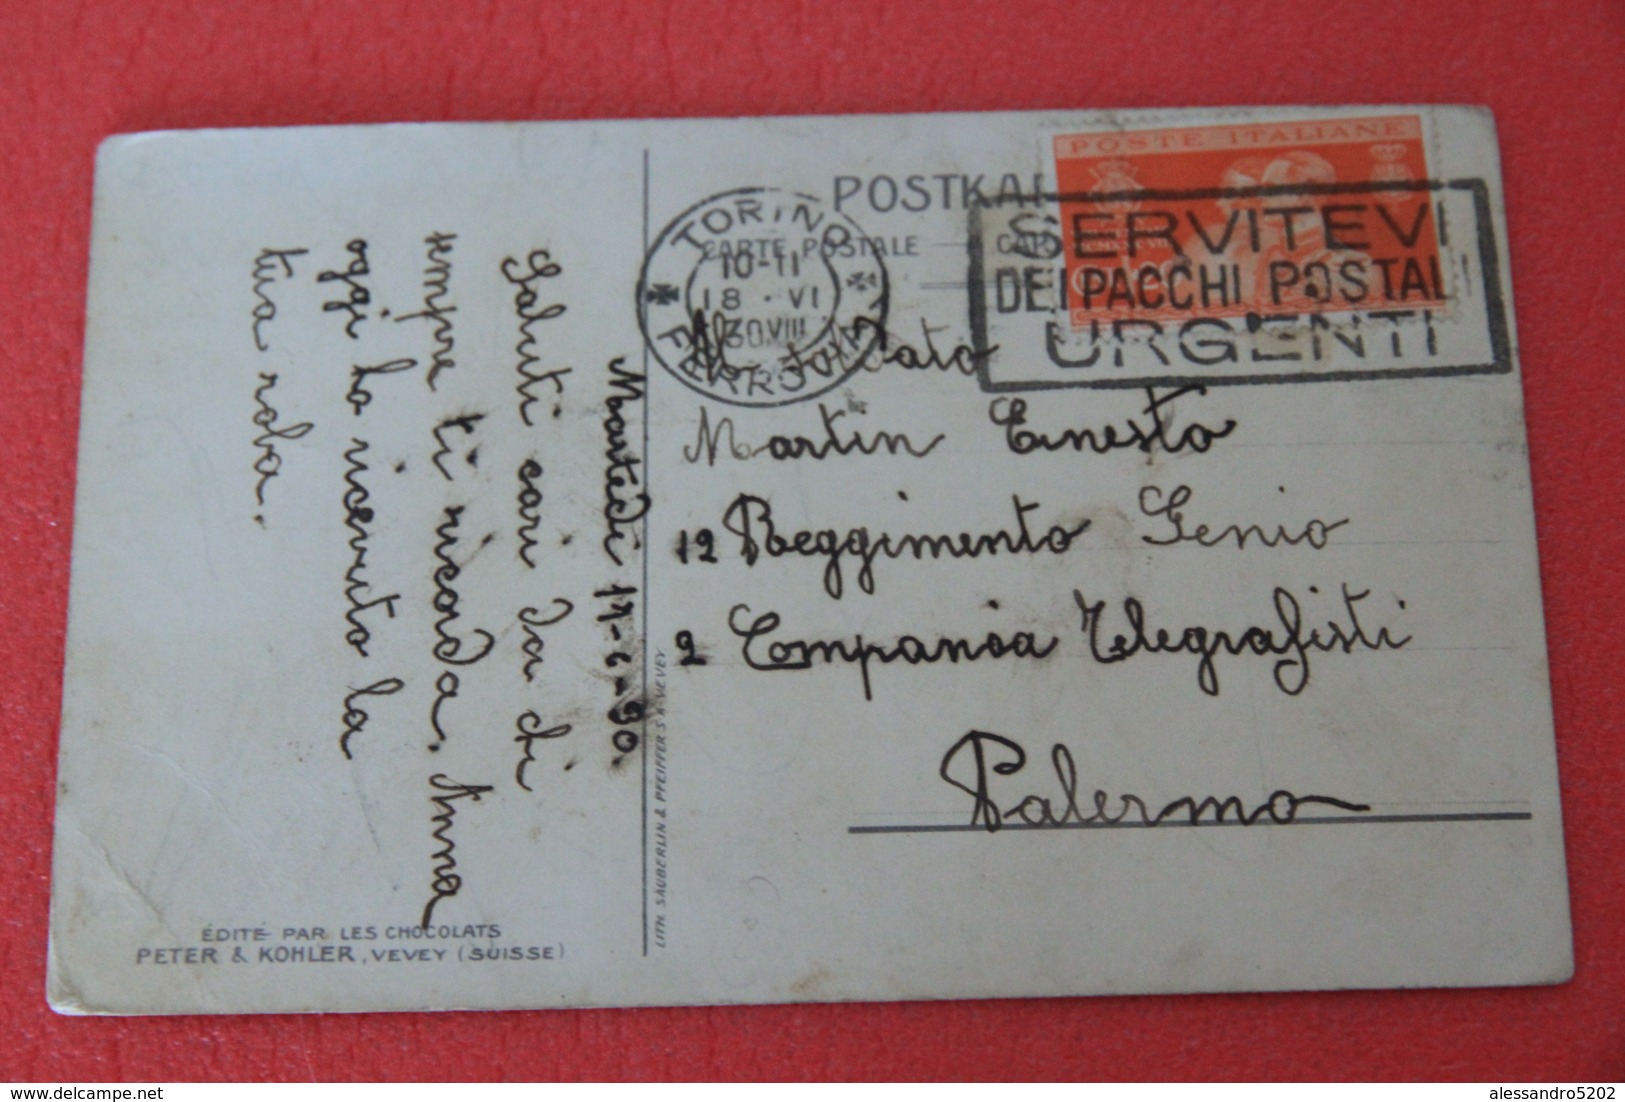 Martedì 17-6-30.
Saluti cari da chi
sempre ti ricorda, Anna
oggi ho ricevuto la
tua roba.
ÉDITÉ PAR LES CHOCOLATS
PETER & KOHLER, VEVEY (SUISSE)
LITH. SÄUBERLIN & PFEIFFER S.A. VEVEY
POSTKAR
CARTE POSTALE
CAR
TORINO
10-11
18 · VI
30 VIII
FERROVIA
POSTE ITALIANE
SERVITEVI
DEI PACCHI POSTALI
URGENTI
Al soldato
Martin Ernesto
12 Reggimento Genio
2 Compania Telegrafisti
Palermo
alessandro5202